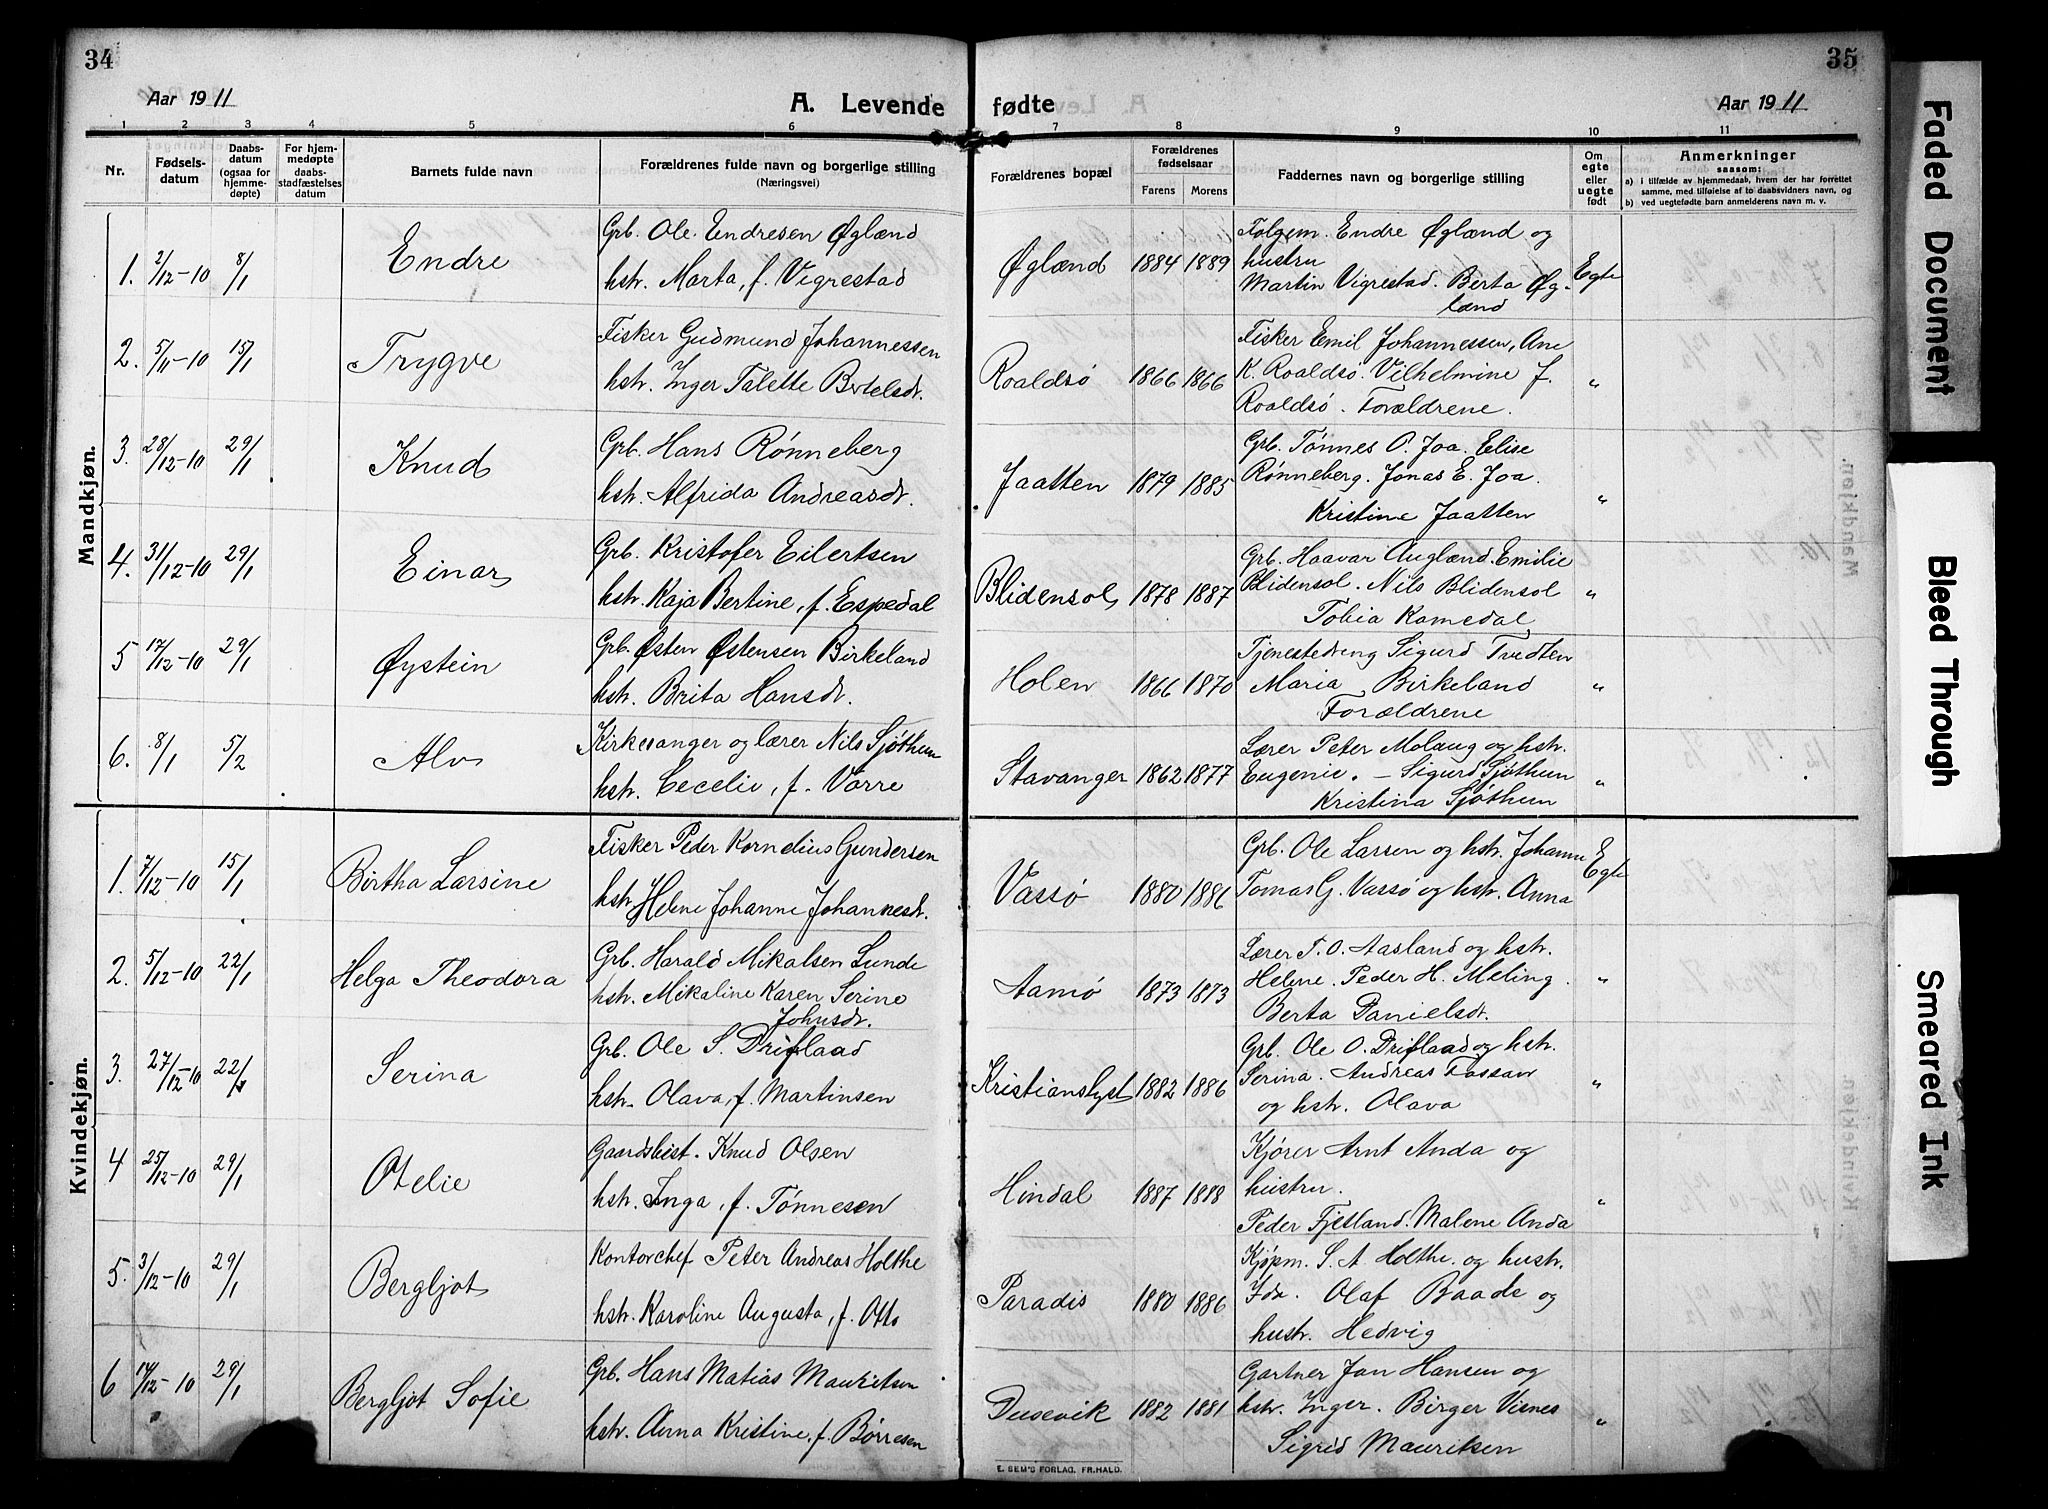 34
Aar 1911
A. Levende
1 2 3 4 5 6
Nr.
Fødsels-
datum
Daabs-
datum
(ogsaa for
hjemme-
døpte)
For hjem-
medøpte
daabs-
stadfæstelses
datum
Barnets fulde navn
Forældrenes fulde navn og borgerlige stilling
(Næringsvei)
Mandkjøn.
1. 2/12-10 8/1 Endre
Grb. Ole Endresen Øglænd
hstr. Marta, f. Vigrestad
2. 5/11-10 15/1 Trygve
Fisker Gudmund Johannessen
hstr. Inger Talette Bertelsdr.
3. 28/12-10 29/1 Knud
Grb. Hans Rønneberg
hstr. Alfrida Andreasdr.
4. 31/12-10 29/1 Einar
Grb. Kristofer Eilertsen
hstr. Kaja Bertine, f. Espedal
5 17/12-10 29/1 Øystein
Grb. Østen Østensen Birkeland
hstr. Brita Hansdr.
6. 8/1 5/2 Alv
Kirkesanger og lærer Nils Sjøthun
hstr. Cecelie, f. Vorre
Kvindekjøn.
1. 7/12-10 15/1 Birtha Larsine
Fisker Peder Kornelius Gundersen
hstr. Helene Johanne Johannesdr.
2. 5/12-10 22/1 Helga Theodora
Grb. Harald Mikalsen Lunde
hstr. Mikaline Karen Serine
Johnsdr.
3. 27/12-10 22/1 Serina
Grb. Ole S. Driflaad
hstr. Olava, f. Martinsen
4 25/12-10 29/1 Otelie
Gaardsbest. Knud Olsen
hstr. Inga, f. Tønnesen
5. 3/12-10 29/1 Bergljot
Kontorchef Peter Andreas Holthe
hstr. Karoline Augusta, f. Otto
6 14/12-10 29/1 Bergljot Sofie
Grb. Hans Matias Mauritsen
hstr. Anna Kristine, f. Børresen
35
fødte
Aar 1911
7 8 9 10 11
Forældrenes bopæl
Forældrenes
fødselsaar
Farens Morens
Faddernes navn og borgerlige stilling
Om
egte
eller
uegte
født
Anmerkninger
saasom:
a) i tilfælde av hjemmedaab, hvem der har forrettet
samme, med tilføielse af to daabsvidners navn, og
b) ved uegtefødte barn anmelderens navn m. v.
Øglænd 1884 1889
Folgem. Endre Øglænd og
hustru
Martin Vigrestad. Berta Øg-
lænd
Egte
Roaldsø 1866 1866
Fisker Emil Johannessen, Ane
K. Roaldsø. Vilhelmine f.
Roaldsø. Forældrene.
"
Jaatten 1879 1885
Grb. Tønnes O. Joa. Elise
Rønneberg. Jonas E. Joa.
Kristine Jaatten
"
Blidensol 1878 1887
Grb. Haavar Auglænd. Emilie
Blidensol. Nils Blidensol
Tobia Kamedal
"
Holen 1866 1870
Tjenestedreng Sigurd Tvedten
Maria Birkeland
Forældrene
"
Stavanger 1862 1877
Lærer Peter Molaug og hstr.
Eugenie. – Sigurd Sjøthun
Kristina Sjøthun
"
Vassø 1880 1886
Grb. Ole Larsen og hstr. Johanne
Tomas G. Vassø og hstr. Anna
Egte
Aamø 1873 1873
Lærer T. O. Aasland og hstr.
Helene. Peder H. Meling.
Berta Danielsdr.
"
Kristianslyst 1882 1886
Grb. Ole O. Driflaad og hstr.
Serina. Andreas Fossan
og hstr. Olava
"
Hindal 1887 1888
Kjører Arnt Anda og
hustru.
Peder Fjetland. Malene Anda
"
Paradis 1880 1886
Kjøpm. S. A. Holthe. og hustr.
Ida. Olaf Baade og
hustr. Hedvig
Dusevik 1882 1881
Gartner Jan Hansen og
hstr. Inger. Birger Visnes
Sigrid Mauritsen
"
E. SEM'S FORLAG, FR.HALD.
Faded Document
Bleed Through
Smeared Ink